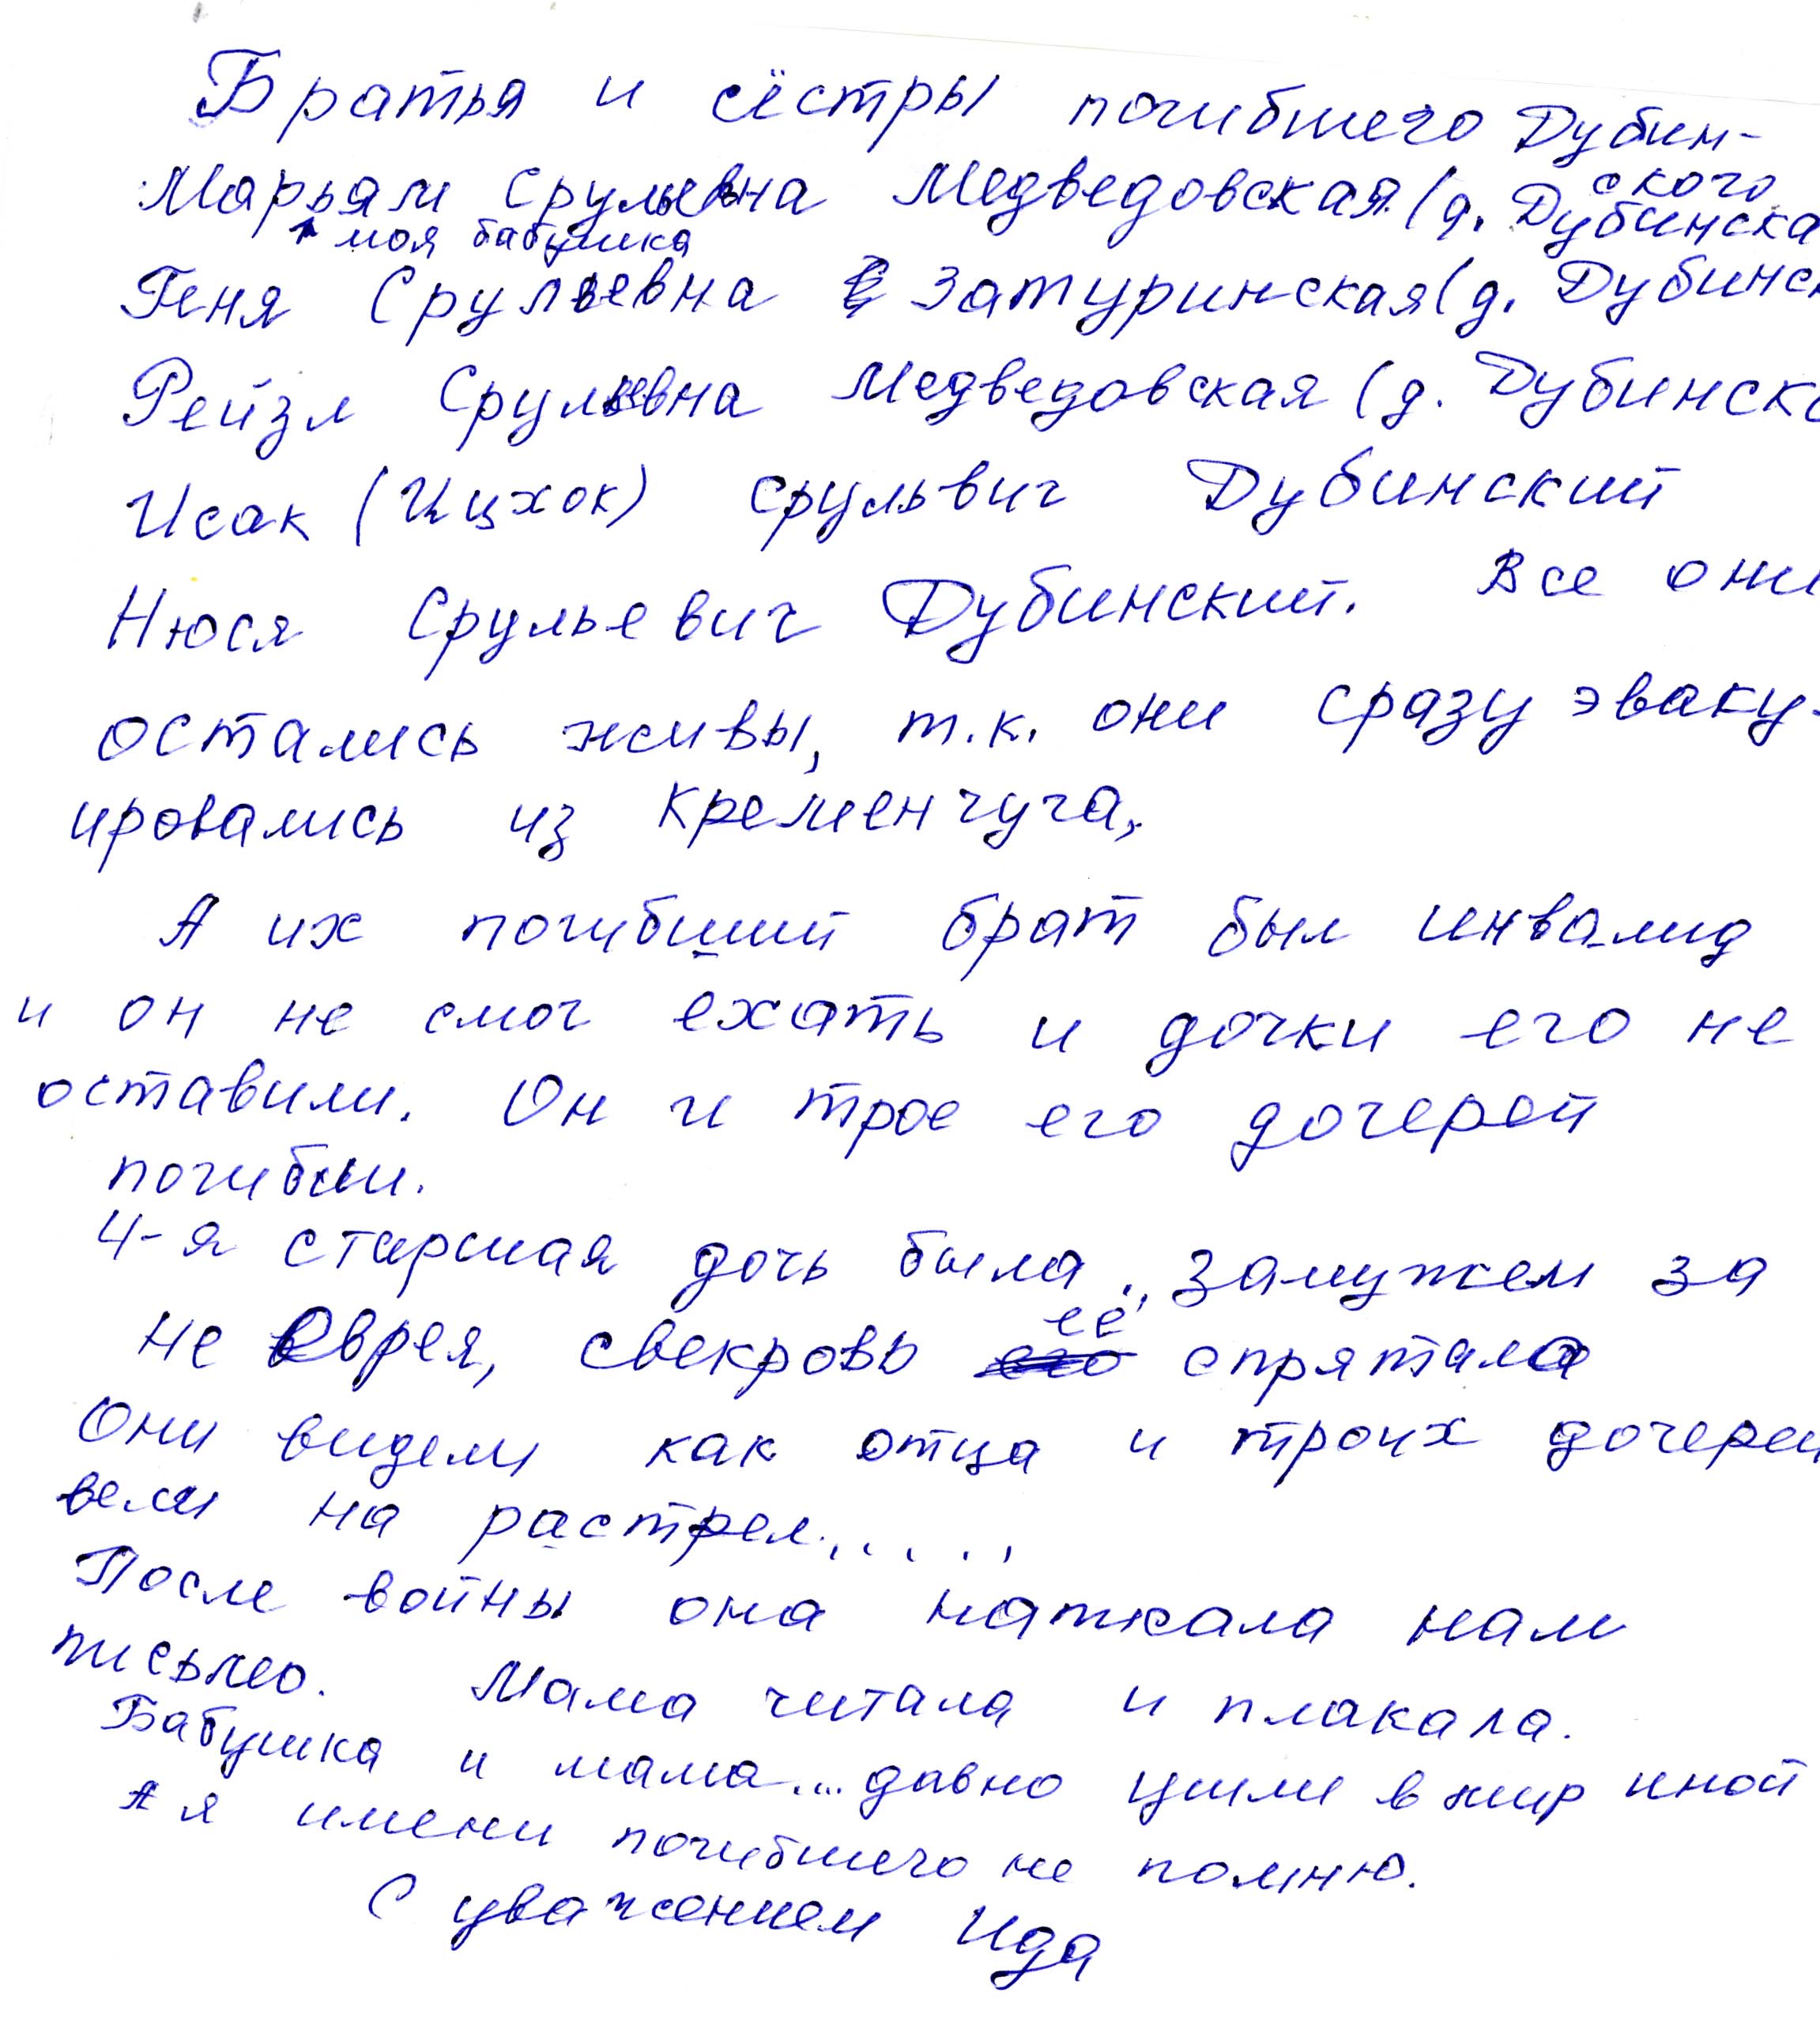 Братья и сёстры погибшего Дубин-
ского
Марьям Срульевна Медведовская (д. Дубинска
моя бабушка
Геня Срульевна Затуринская (д. Дубинс
Рейзл Срульевна Медведовская (д. Дубинск
Исак (Ицхок) Срульвич Дубинский
Нюся Срульевич Дубинский. Все они
остались живы, т.к. они сразу эваку-
ировались из Кременчуга.
А их погибший брат был инвалид
и он не смог ехать и дочки его не
оставили. Он и трое его дочерей
погибли.
4-я старшая дочь была замужем за
не еврея, свекровь её спрятала
Они видели как отца и троих дочерей
вели на растрел.....
После войны она написала нам
письмо. Мама читала и плакала.
Бабушка и мама... давно ушли в мир иной
А я имени погибшего не помню.
С уважением Ида